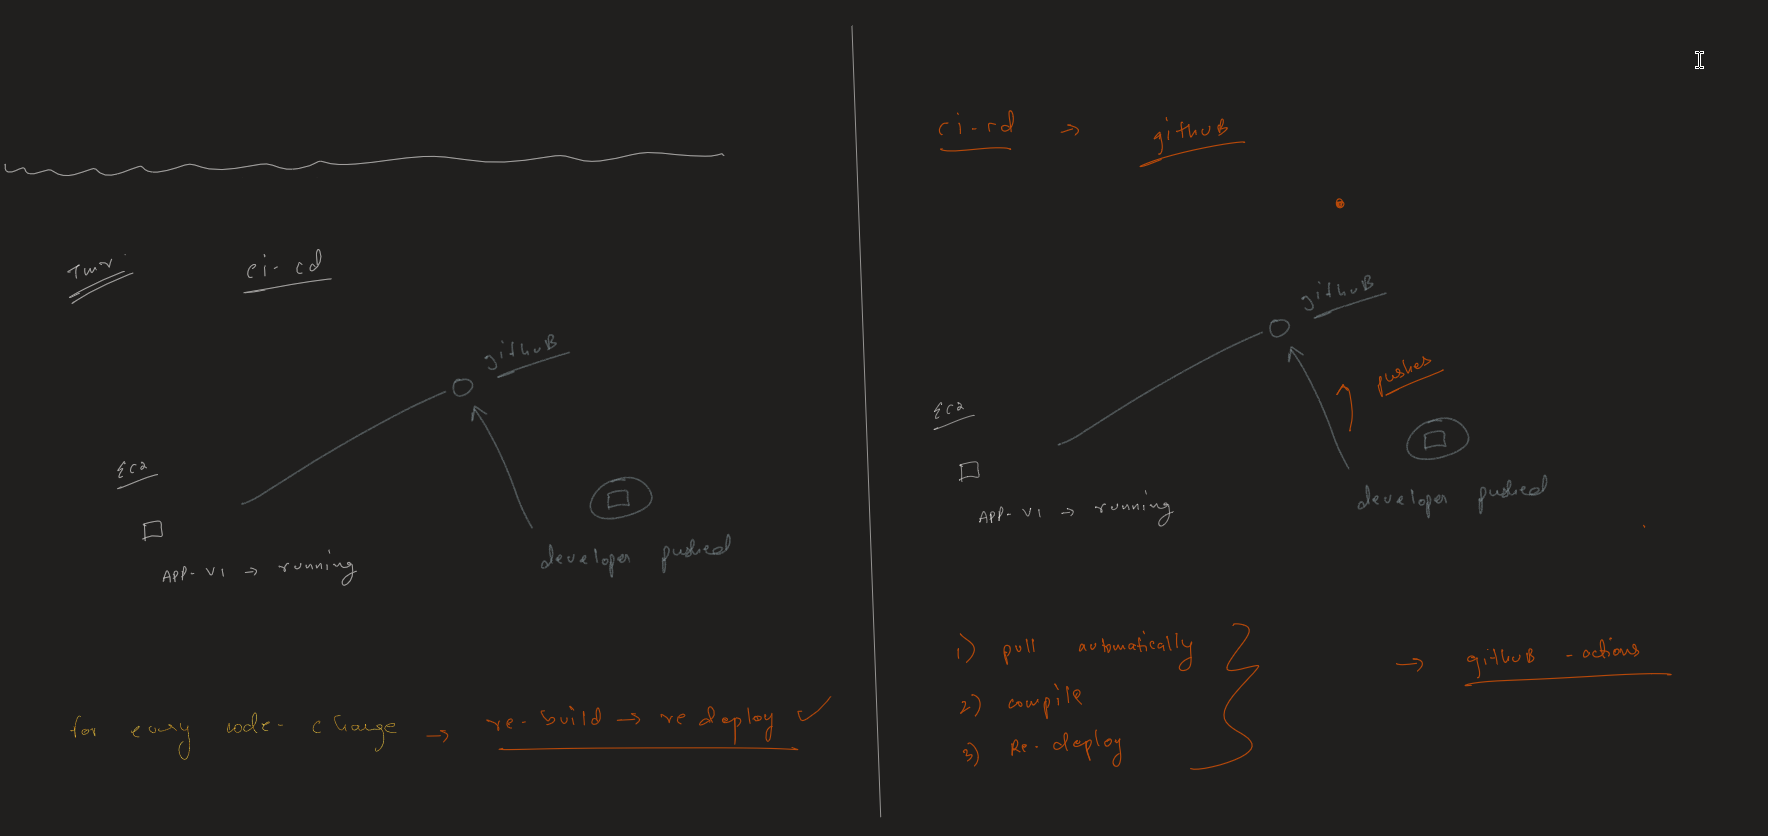 Tmr.
ci-cd
githuB
EC2
APP-V1 → running
developer pushed
for every code-change → re-build → re deploy ✓
ci-cd → githuB
githuB
pushes
EC2
APP-V1 → running
developer pushed
1) pull automatically
2) compile
3) Re-deploy
→ githuB -actions